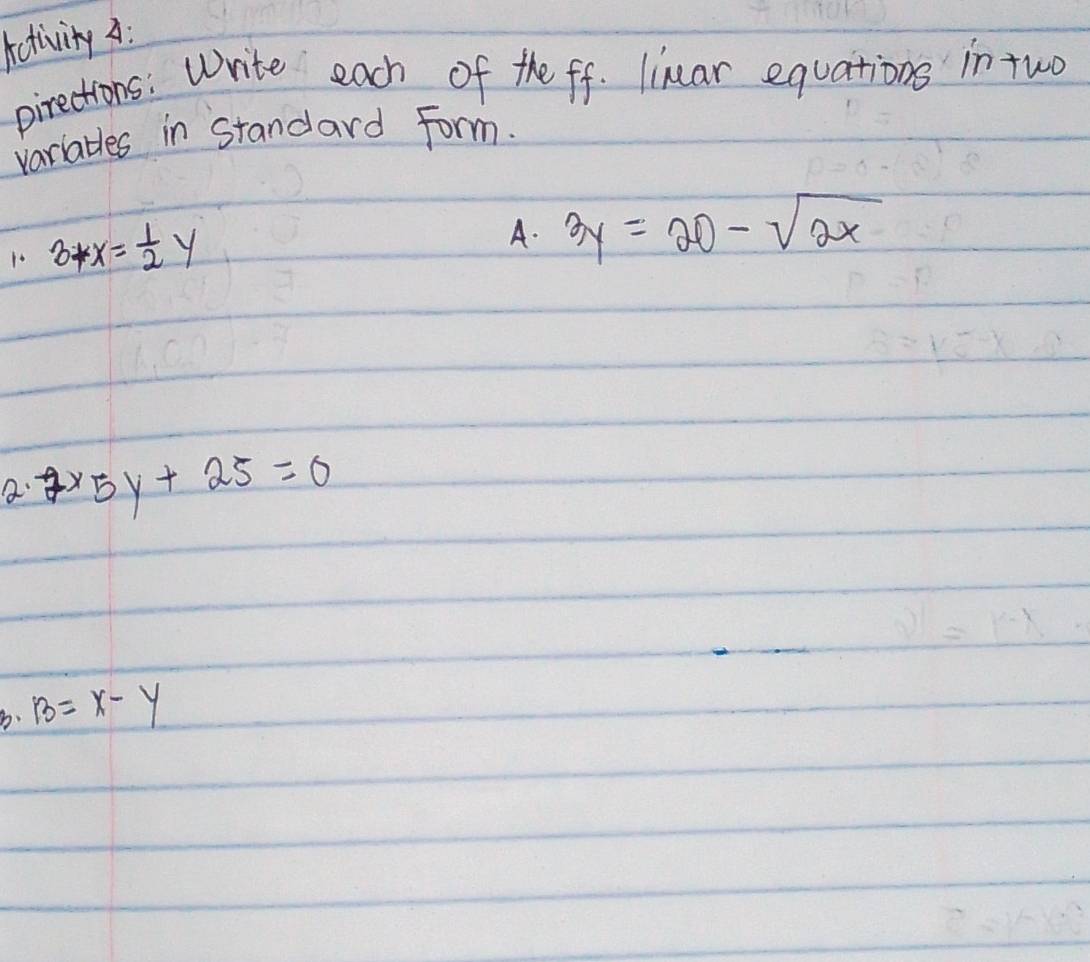 Activity 4:
Directions: Write each of the ff. linear equations in two
variables in Standard Form.
1. 3+x = 1/2 y
4. 3y = 20 - √2x
2. 7x 5y + 25 = 0
3. 13 = x - y